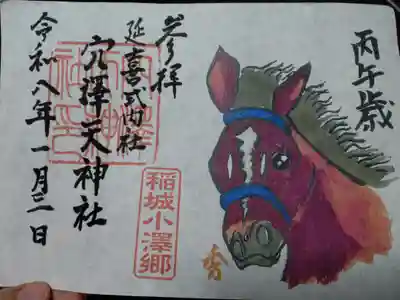 丙午歳
参拝
延喜式内社
穴澤天神社
令和八年一月三日
稲城小澤郷